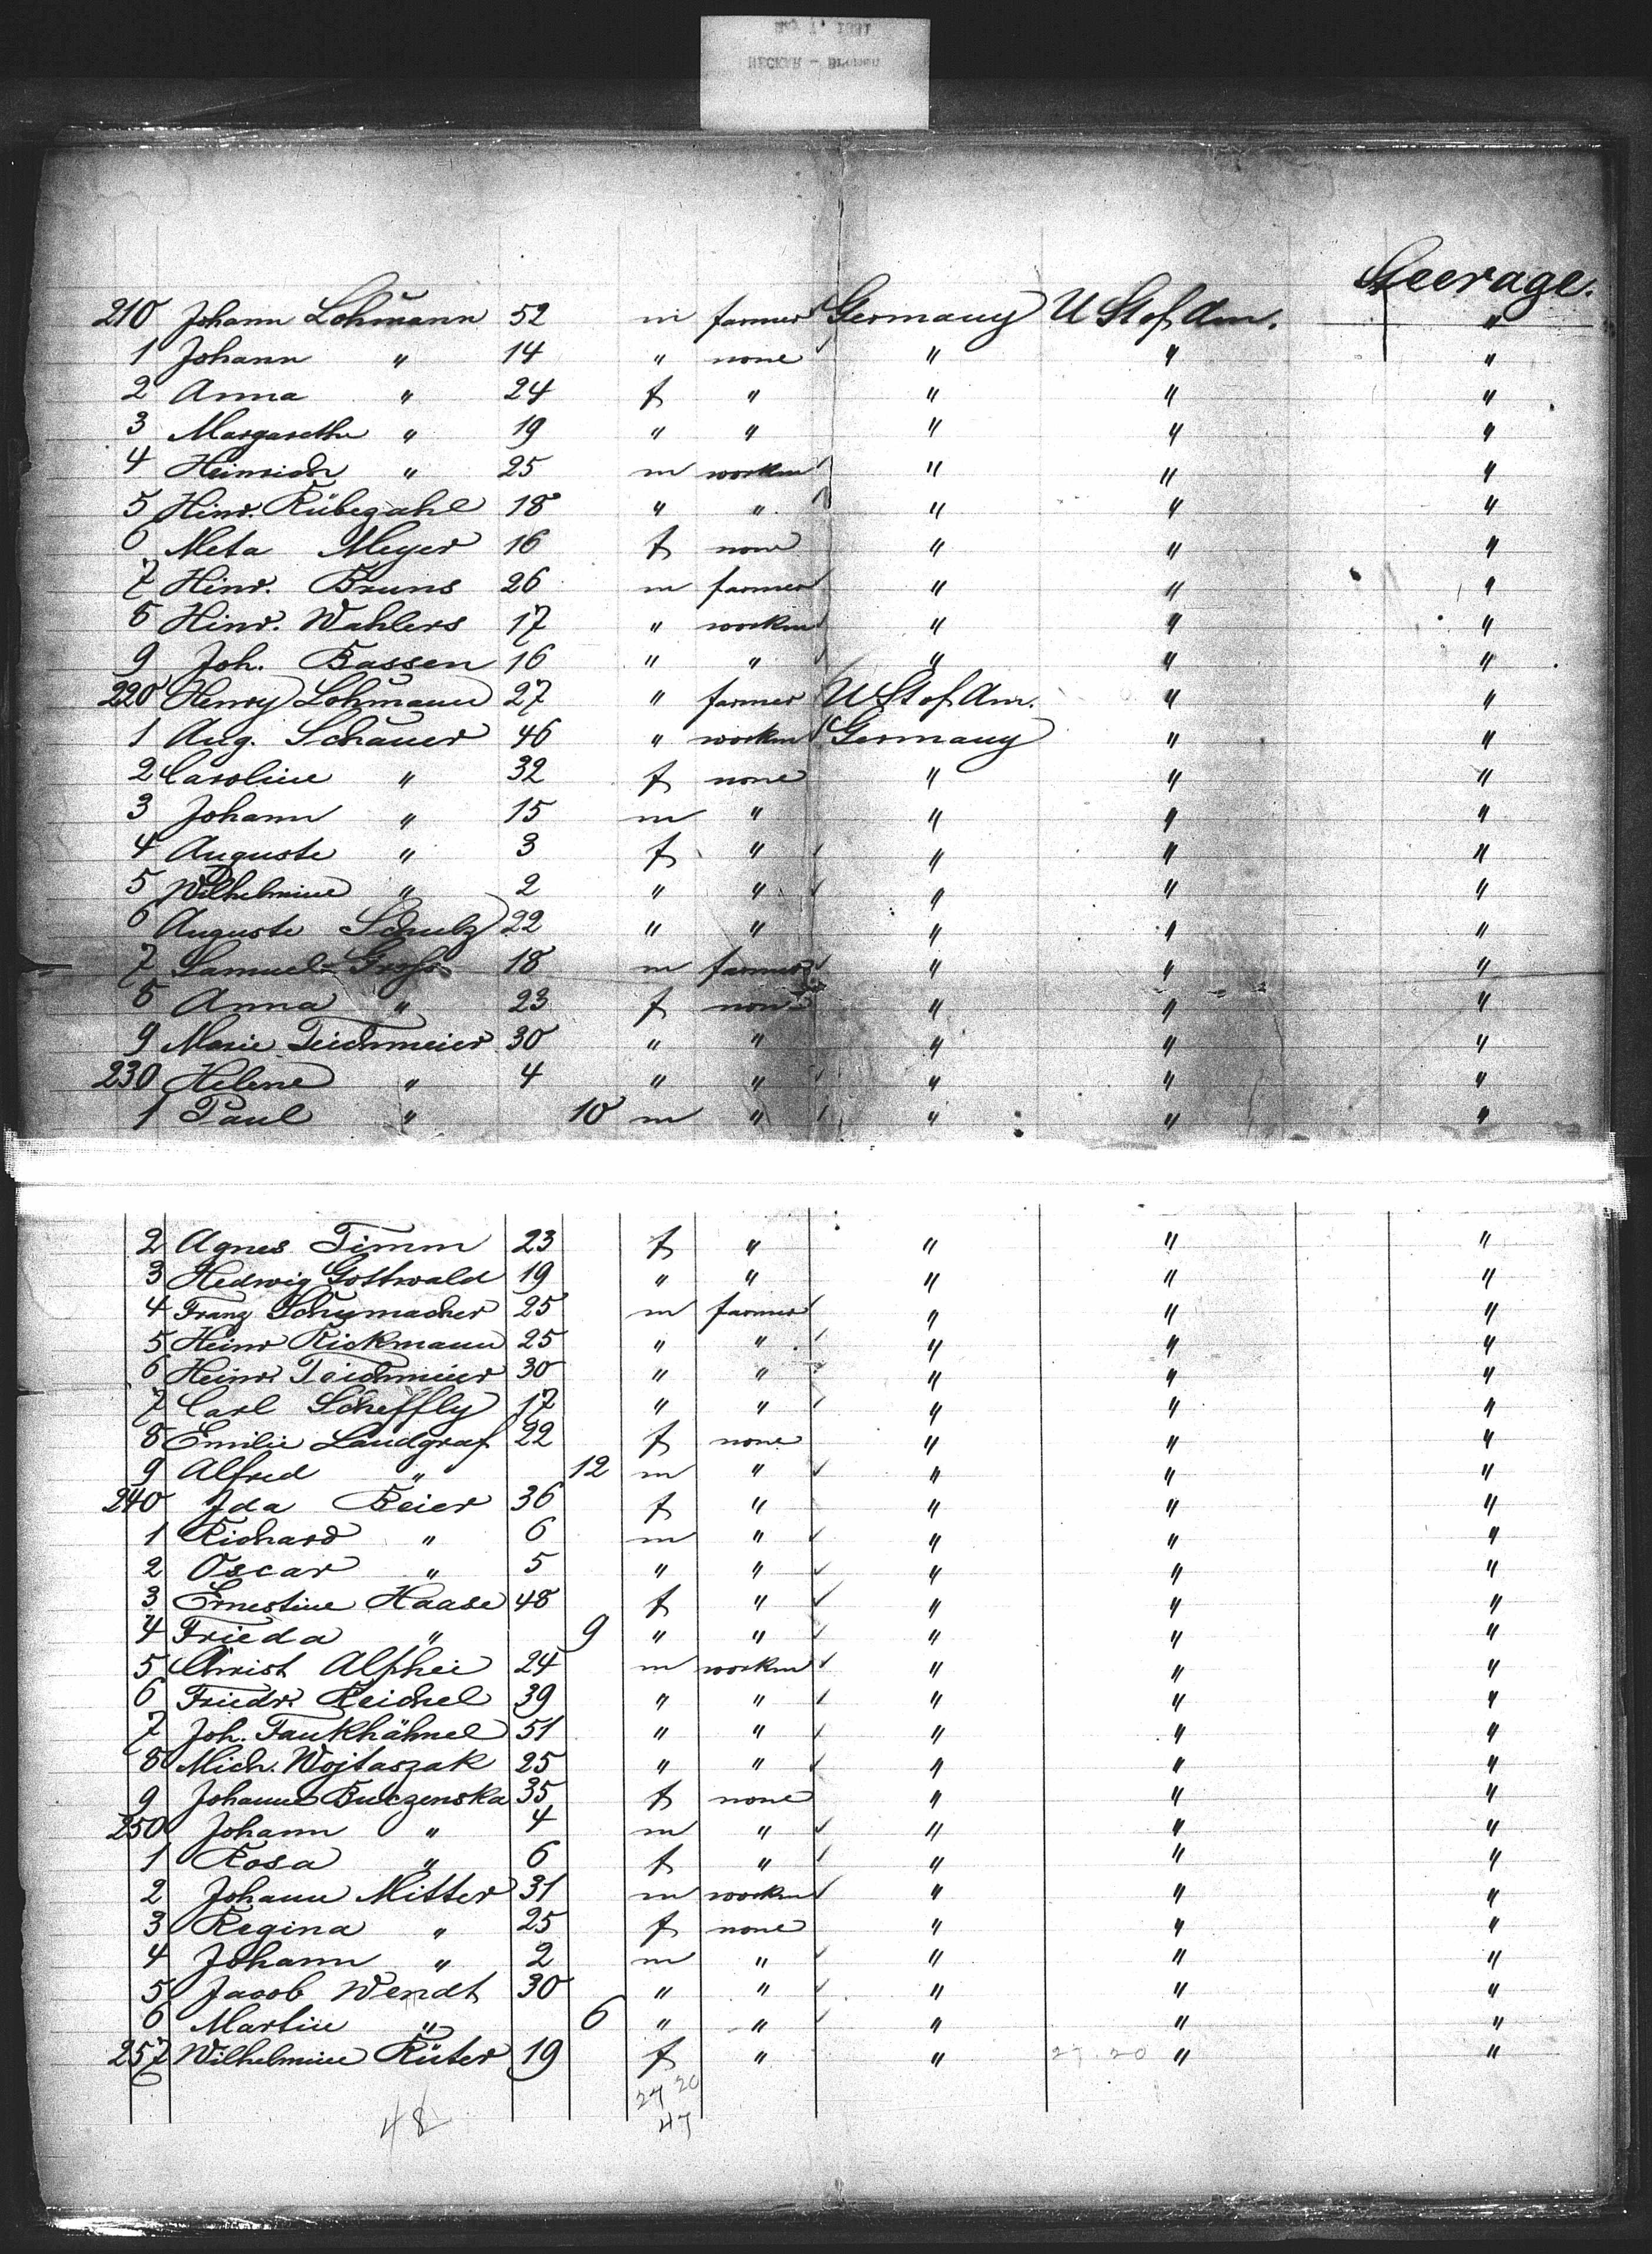 May 7, 1881
NECKAR - Bremen
Steerage.
210 Johann Lohmann 52 m farmer Germany U St of Am. "
1 Johann " 14 " none " " "
2 Anna " 24 f " " " "
3 Margarethe " 19 " " " " "
4 Heinrich " 25 m workm " " "
5 Hinr. Rübezahl 18 " " " " "
6 Meta Meyer 16 f none " " "
7 Hinr. Bruns 26 m farmer " " "
8 Hinr. Wahlers 17 " workm " " "
9 Joh. Bassen 16 " " " " "
220 Henry Lohmann 27 " farmer U St of Am. " "
1 Aug. Schauer 46 " workm Germany " "
2 Caroline " 32 f none " " "
3 Johann " 15 m " " " "
4 Auguste " 3 f " " " "
5 Wilhelmine " 2 " " " " "
6 Auguste Schulz 22 " " " " "
7 Samuel Gross 18 m farmer " " "
8 Anna " 23 f none " " "
9 Marie Teichmeier 30 " " " " "
230 Helene " 4 " " " " "
1 Paul " 10 m " " " "
2 Agnes Timm 23 f " " " "
3 Hedwig Gottwald 19 " " " " "
4 Franz Schumacher 25 m farmer " " "
5 Heinr Rickmann 25 " " " " "
6 Heinr. Teichmeier 30 " " " " "
7 Carl Scheffly 17 " " " " "
8 Emilie Landgraf 22 f none " " "
9 Alfred " 12 m " " " "
240 Ida Beier 36 f " " " "
1 Richard " 6 m " " " "
2 Oscar " 5 " " " " "
3 Ernestine Haase 48 f " " " "
4 Frieda " 9 " " " " "
5 Christ Alphei 24 m workm " " "
6 Friedr. Reichel 39 " " " " "
7 Joh. Fankhähnel 51 " " " " "
8 Mich. Wojtaszak 25 " " " " "
9 Johanne Buczenska 35 f none " " "
250 Johann " 4 m " " " "
1 Rosa " 6 f " " " "
2 Johann Mitter 31 m workm " " "
3 Regina " 25 f none " " "
4 Johann " 2 m " " " "
5 Jacob Wendt 30 " " " " "
6 Martin " 6 " " " " "
257 Wilhelmine Rüter 19 f " " 27.20 " "
27 20
48 47